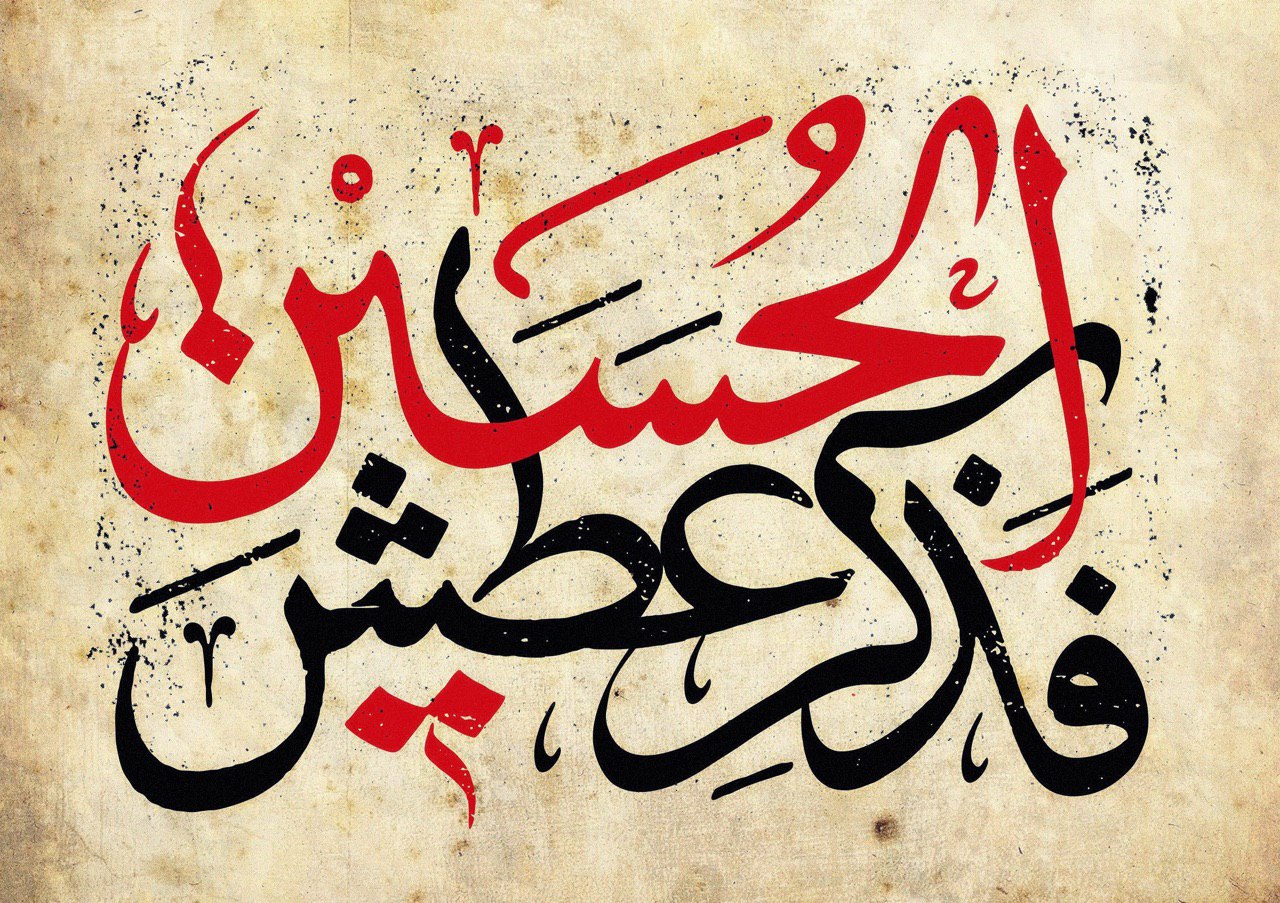 فذكر عطش
الحسين